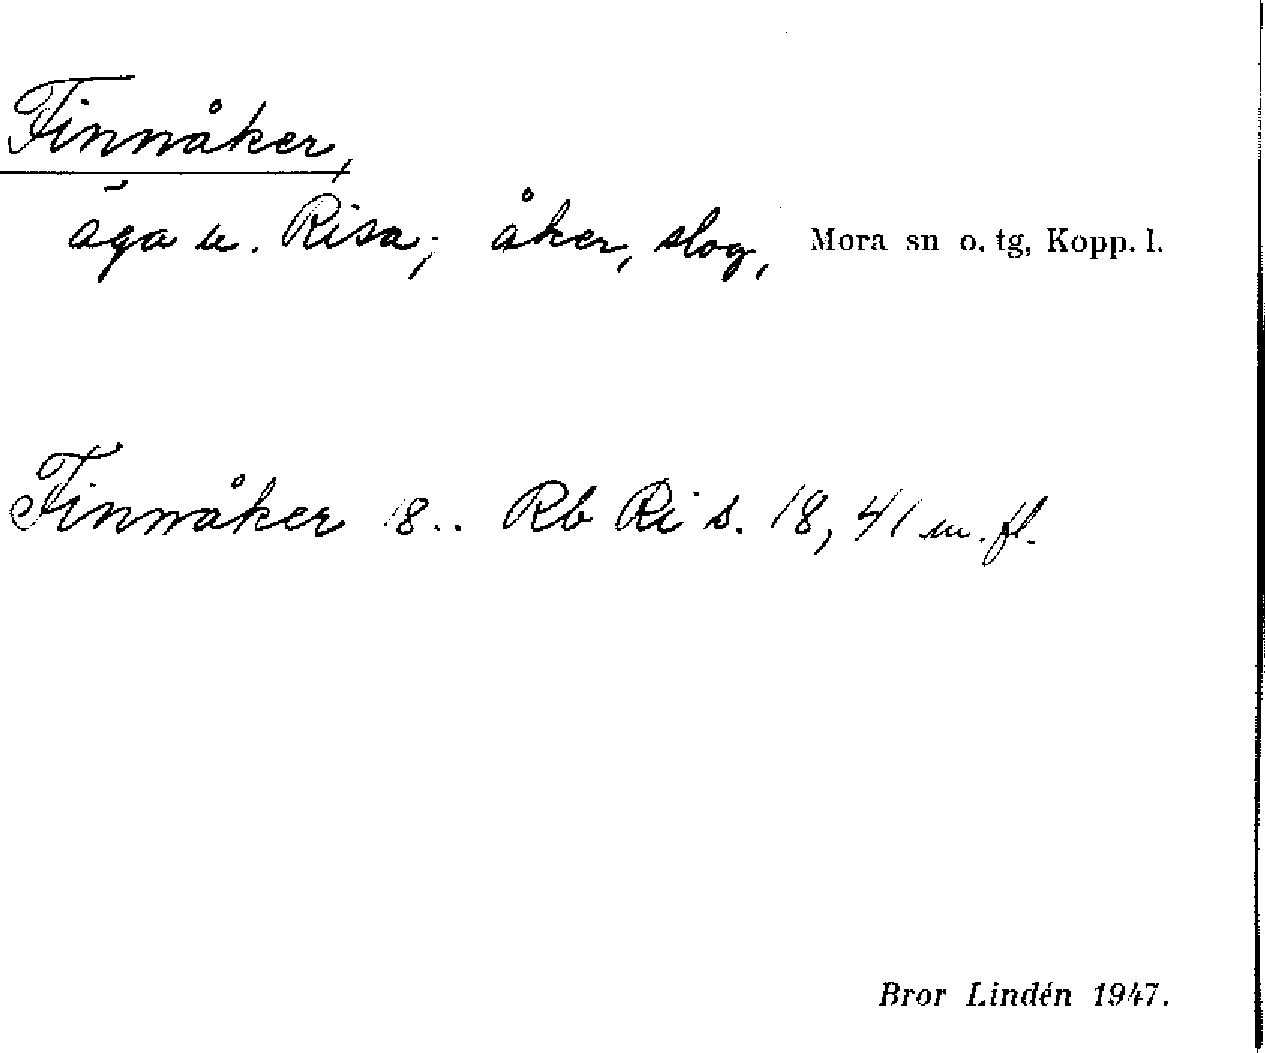 Finnåker,
äga u. Risa; åker, slog, Mora sn o. tg, Kopp. l.
Finnåker 18.. Rb Ri s. 18, 41 m. fl.
Bror Lindén 1947.